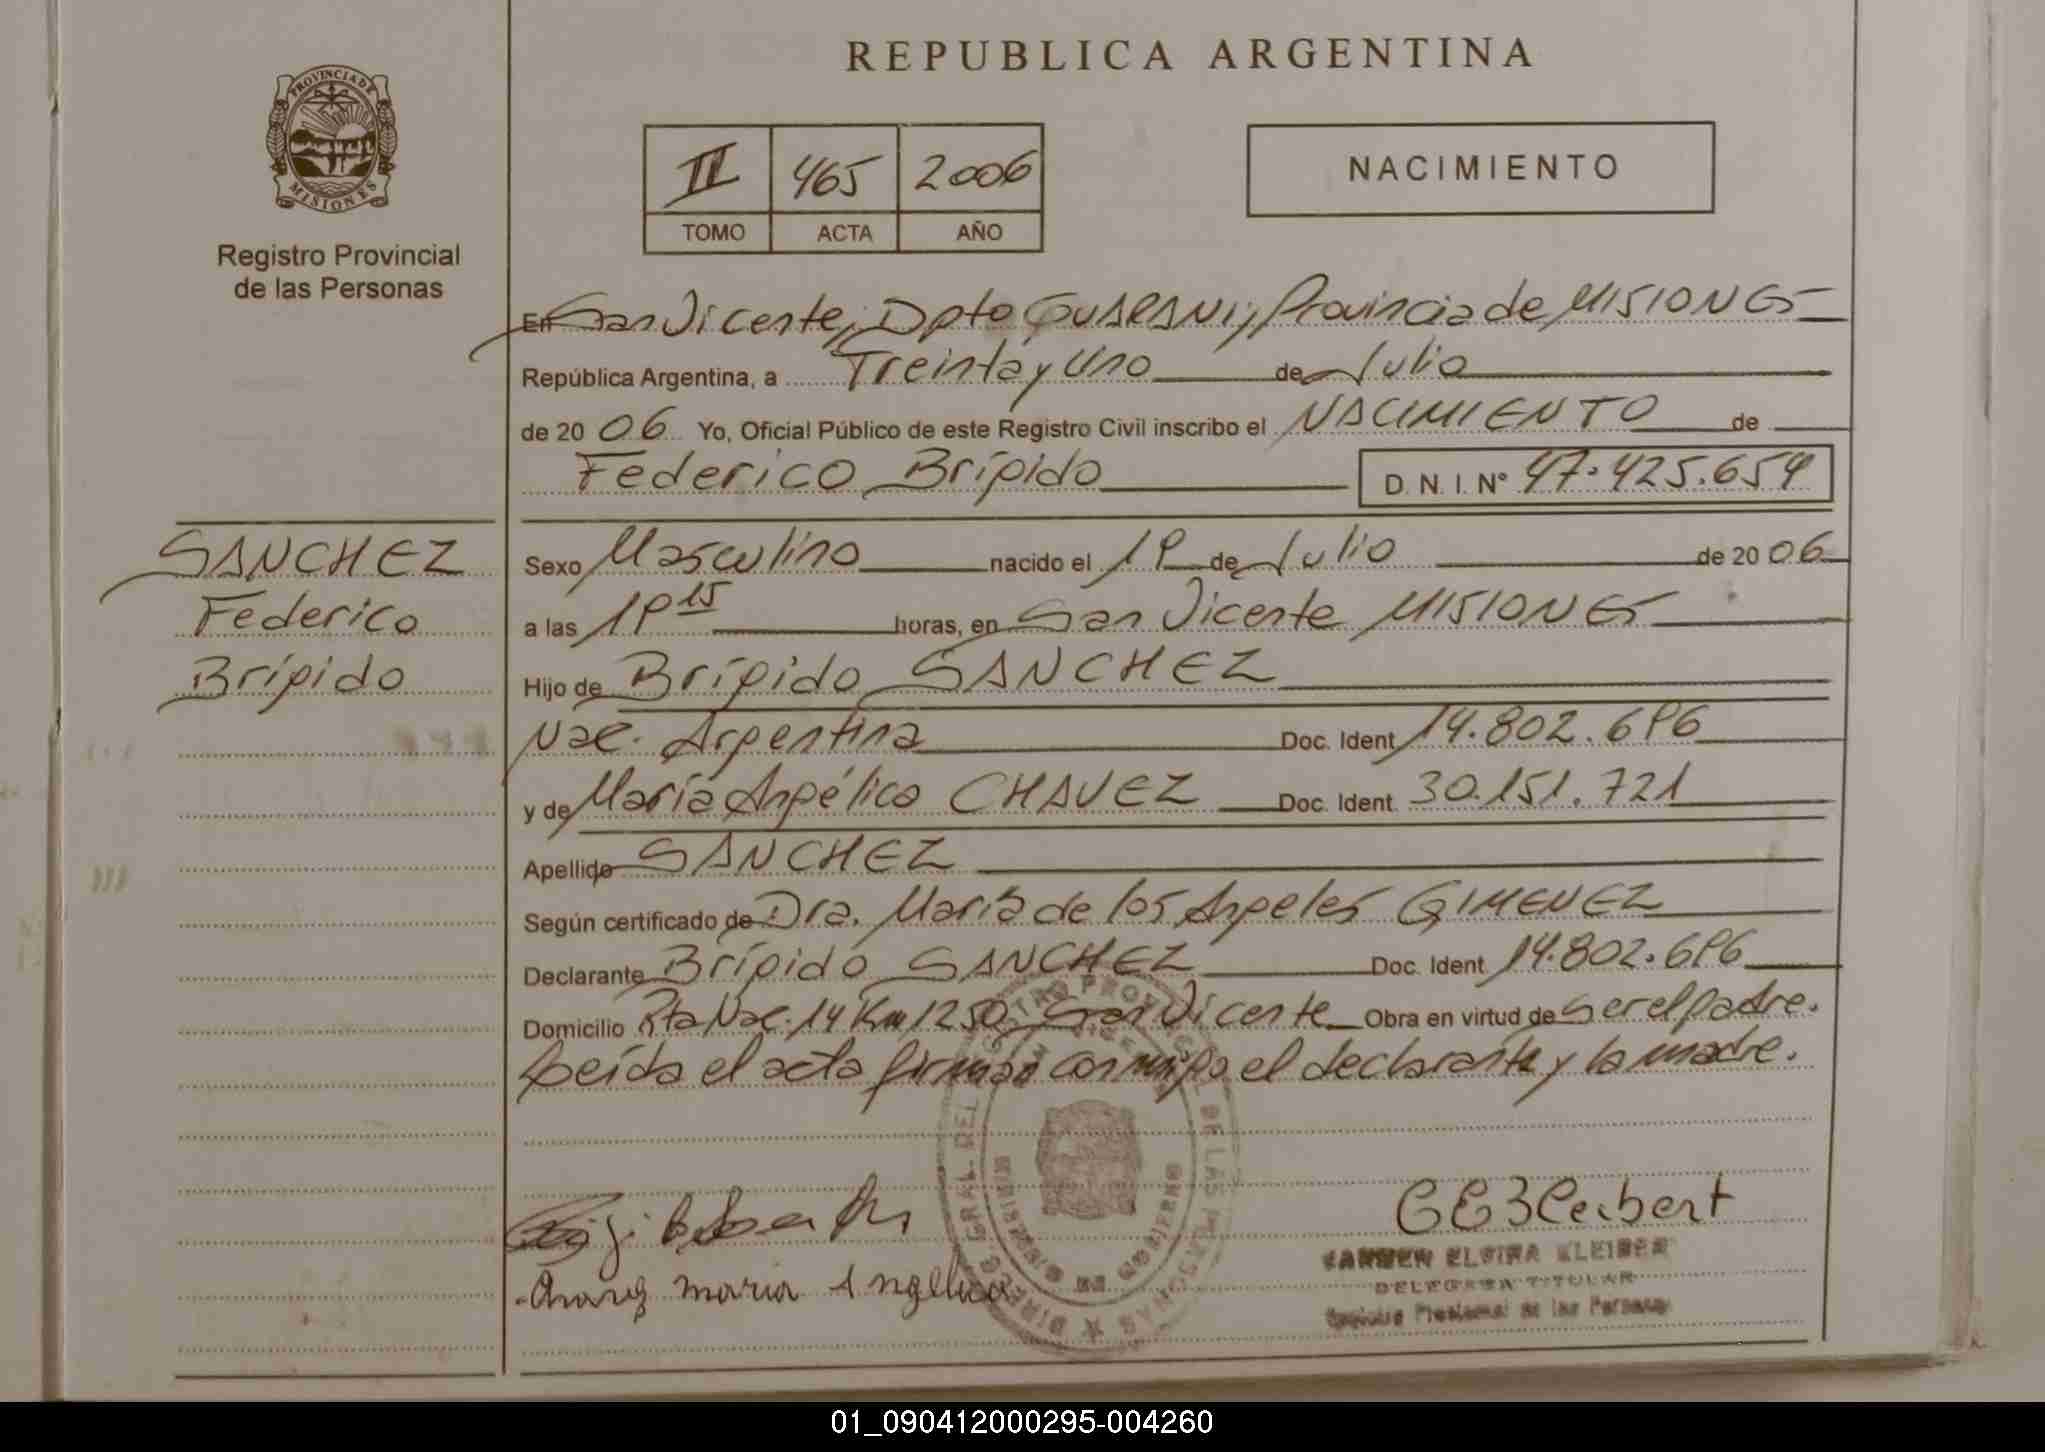 REPUBLICA ARGENTINA
PROVINCIA DE MISIONES
Registro Provincial
de las Personas
II 465 2006
TOMO ACTA AÑO
NACIMIENTO
En San Vicente, Dpto GUARANI, Provincia de MISIONES
República Argentina, a Treinta y Uno de Julio
de 2006 Yo, Oficial Público de este Registro Civil inscribo el NACIMIENTO de
Federico Brígido D. N. I. Nº 47.425.654
SANCHEZ
Federico
Brígido
Sexo Masculino nacido el 19 de Julio de 2006
a las 19 15 horas, en San Vicente MISIONES
Hijo de Brígido SANCHEZ
Nac. Argentina Doc. Ident 14.802.696
y de María Angélica CHAVEZ Doc. Ident. 30.151.721
Apellido SANCHEZ
Según certificado de Dra. María de los Angeles GIMENEZ
Declarante Brígido SANCHEZ Doc. Ident 14.802.696
Domicilio Rta Nac. 14 Km 1250 San Vicente Obra en virtud de Ser el padre.
Leída el acta firman conmigo el declarante y la madre.
maria Angelica
CARMEN ELVIRA KLEIBER
DELEGADA TITULAR
Registro Provincial de las Personas
01_090412000295-004260